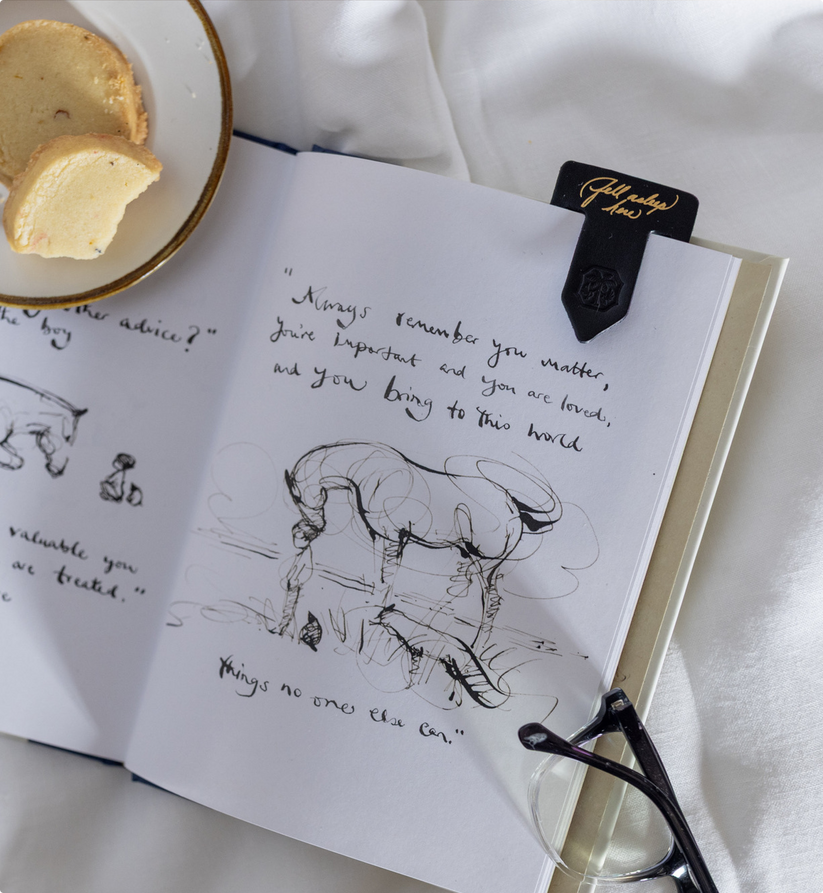 other advice?"
the boy
valuable you
are treated."
"Always remember you matter,
you're important and you are loved,
and you bring to this world
things no one else can."
fell asleep
here